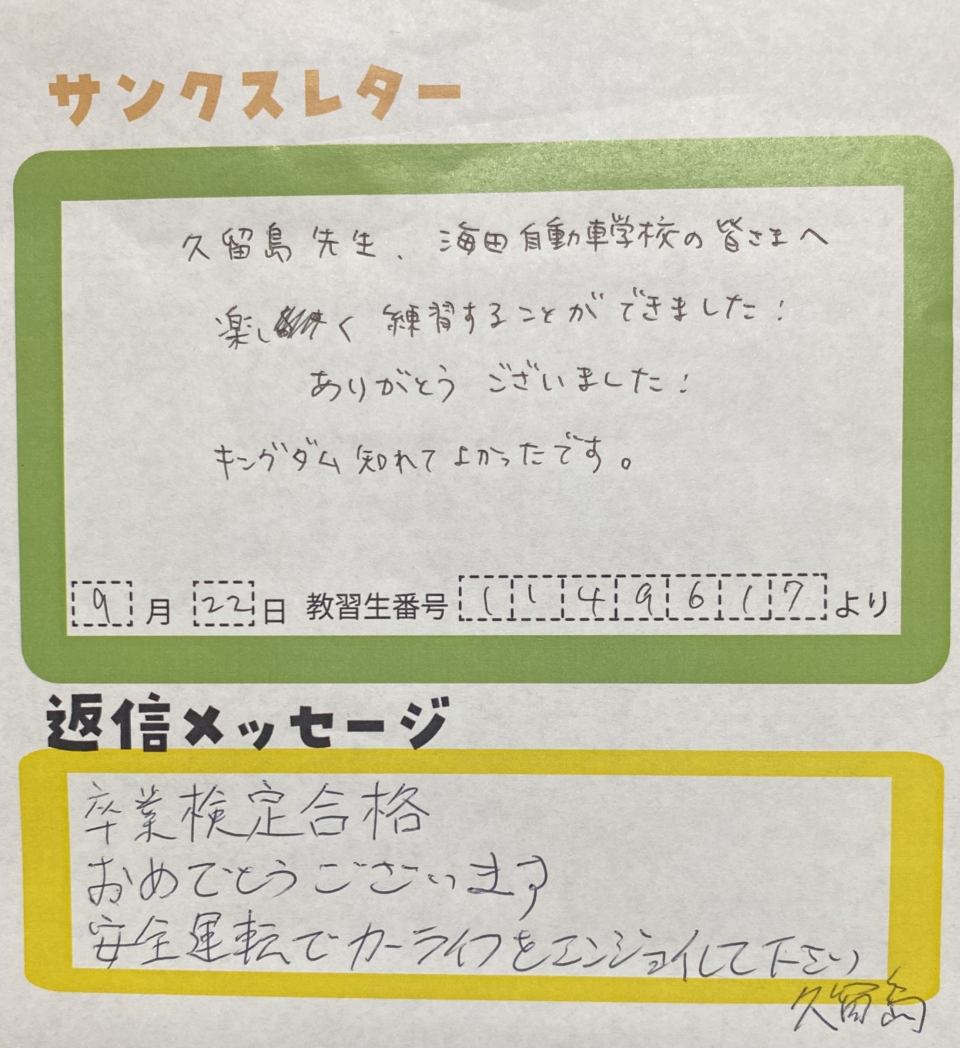 サンクスレター
久留島先生、海田自動車学校の皆さまへ
楽しく練習することができました！
ありがとうございました！
キングダム知れてよかったです。
9月22日 教習生番号 1149617より
返信メッセージ
卒業検定合格
おめでとうございます
安全運転でカーライフをエンジョイして下さい
久留島